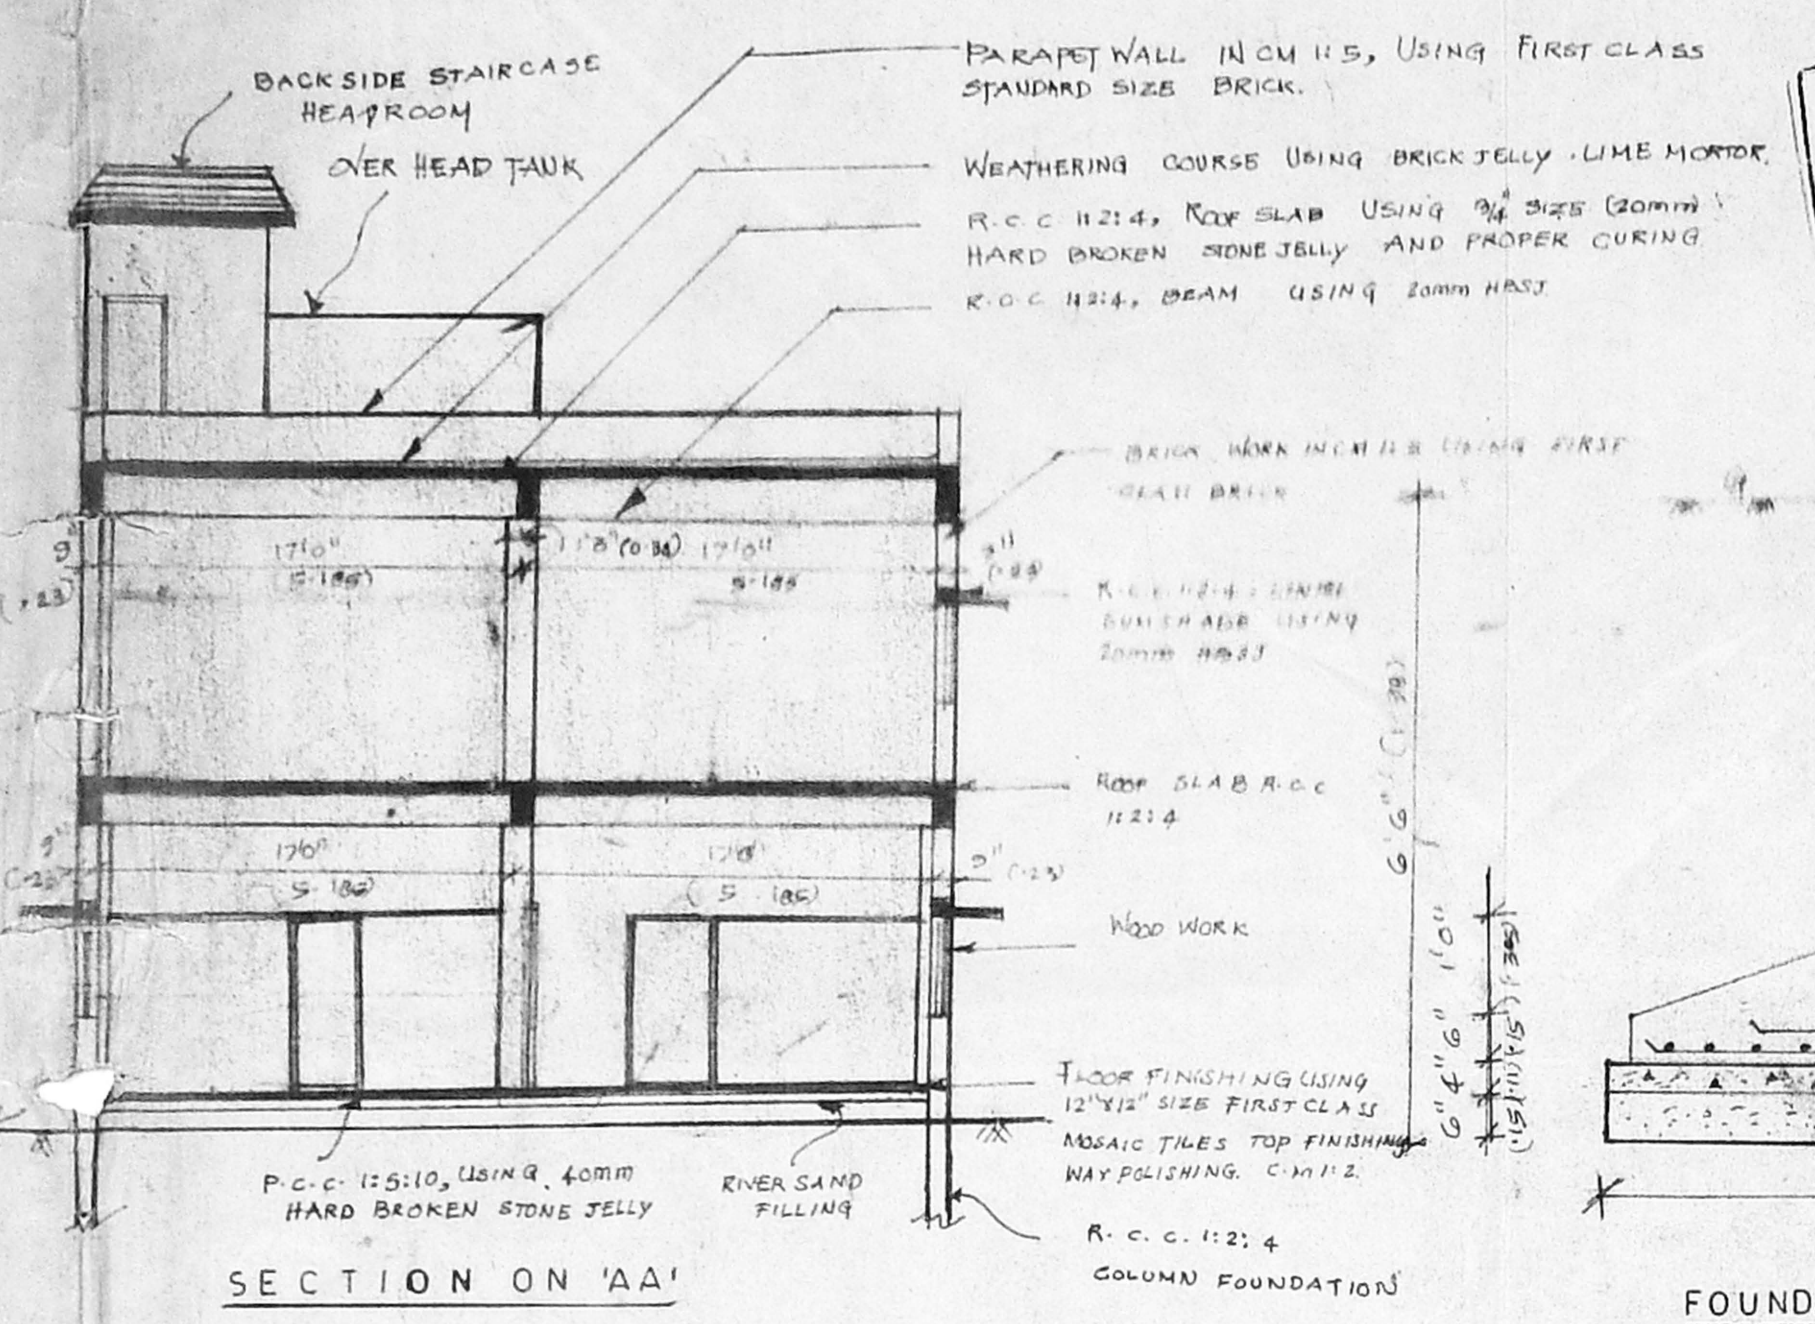 BACKSIDE STAIRCASE
HEADROOM
OVER HEAD TANK
PARAPET WALL IN CM 1:5, USING FIRST CLASS
STANDARD SIZE BRICK.
WEATHERING COURSE USING BRICK JELLY . LIME MORTOR.
R.C.C 1:2:4, ROOF SLAB USING 3/4" SIZE (20mm)
HARD BROKEN STONE JELLY AND PROPER CURING
R.C.C 1:2:4, BEAM USING 20mm HBSJ
BRICK WORK IN CM USING FIRST
BRICK
9" 17'0" 1'3" 17'0" 9"
(.23) (5.185) 5.185 (.23)
R.C.C. 1:2:4
SUNSHADE USING
20mm HBSJ
6'6"
ROOF SLAB R.C.C
1:2:4
9" 17'0" 17'0" 9" (.23)
(.23) (5.185) (5.185)
WOOD WORK
6" 4" 6" 1'0"
FLOOR FINISHING USING
12"X12" SIZE FIRST CLASS
MOSAIC TILES TOP FINISHING
WAY POLISHING. C.M 1:2.
P.C.C. 1:5:10, USING. 40mm
HARD BROKEN STONE JELLY
RIVER SAND
FILLING
R.C.C. 1:2:4
COLUMN FOUNDATION
SECTION ON 'AA'
FOUND